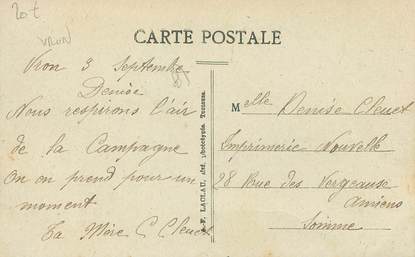 20 t
VRON
CARTE POSTALE
Vron 3 Septembre
Denise
Nous respirons l'air
de la Campagne
On en prend pour un
moment
Ta Mère C Cleuet
LACLAU, phototypie, Toulouse.
Melle Denise Cleuet
Imprimerie Nouvelle
28 Rue des Vergeaux
Amiens
Somme